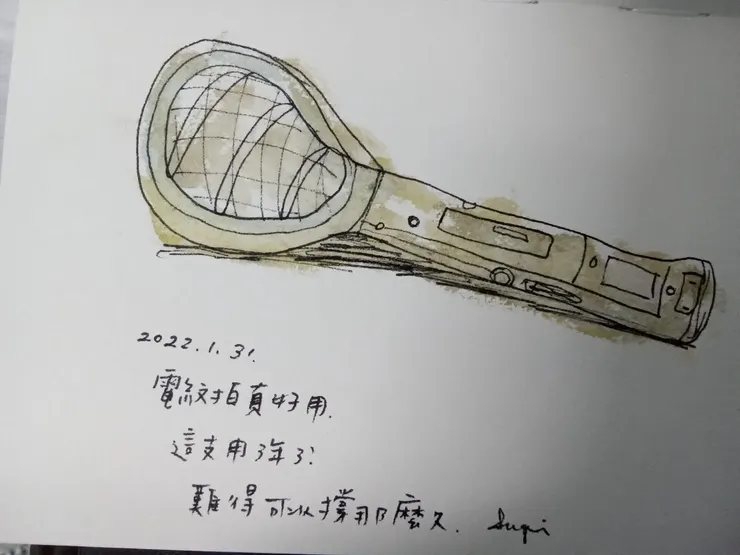 2022.1.31.
電紋拍真好用.
這支用3年了!
難得可以撐那麼久. Suqi